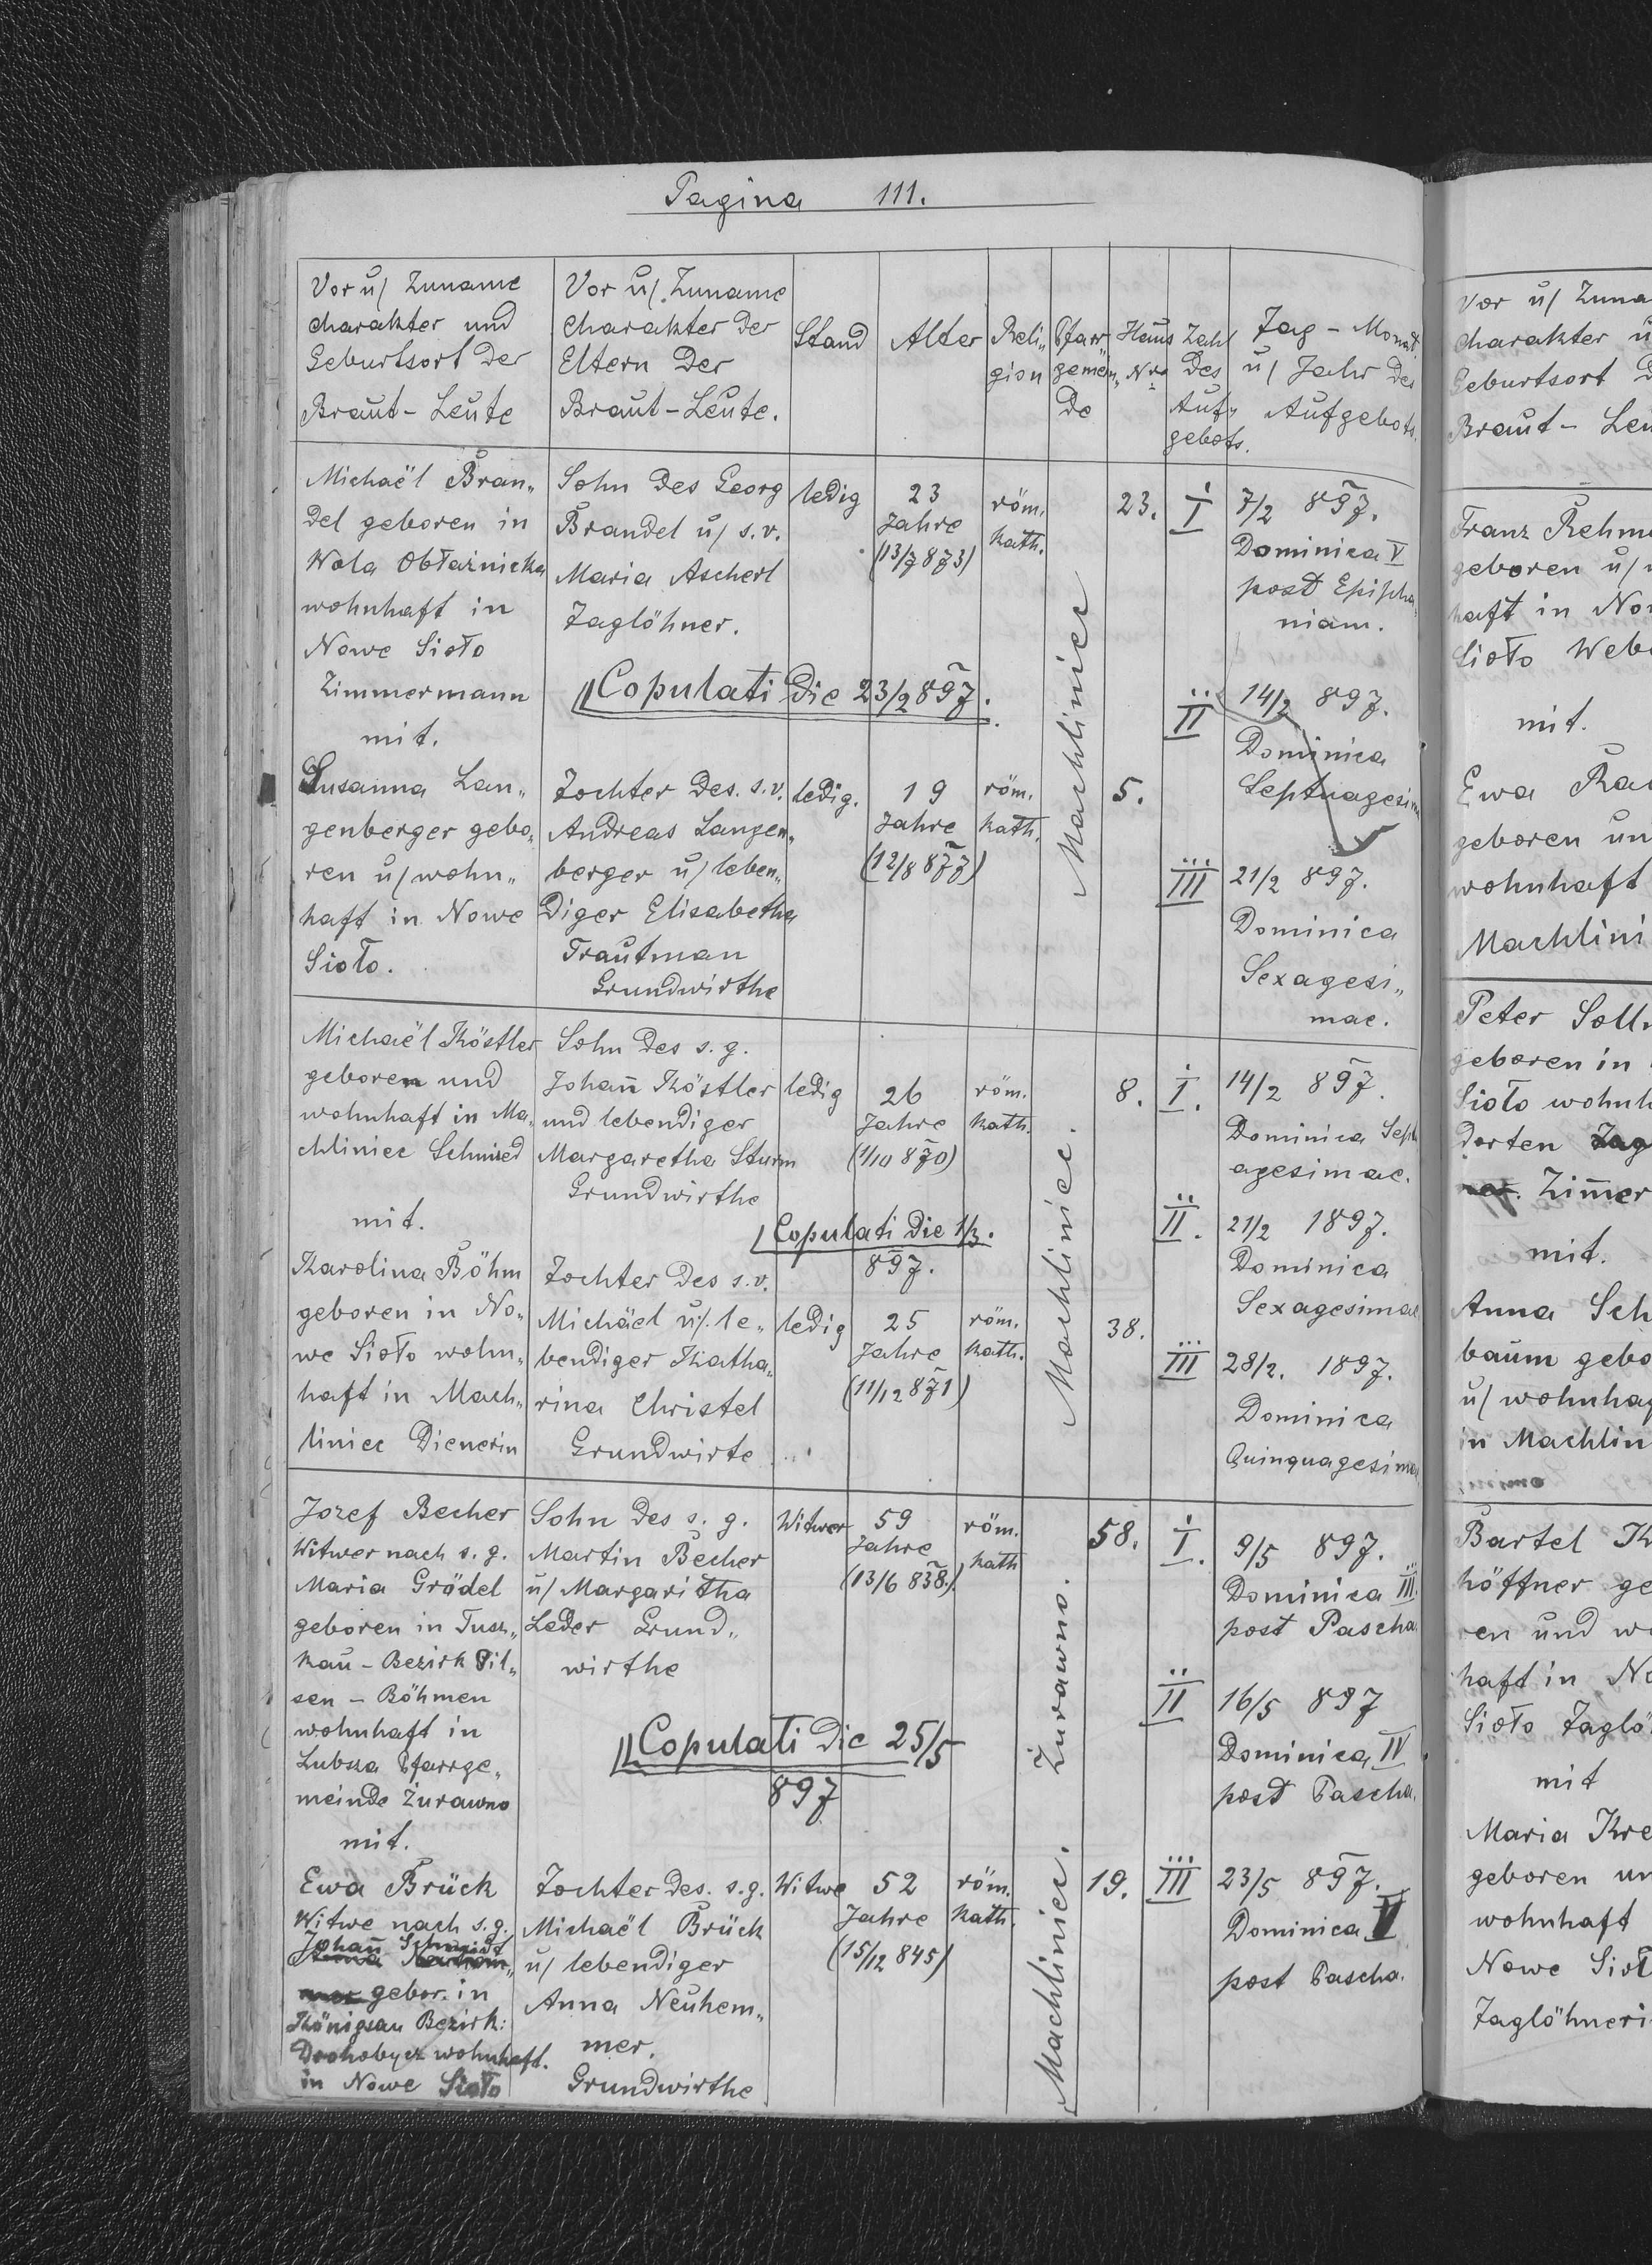 Pagina 111.
Vor u/ Zuname
Charakter und
Geburtsort der
Braut-Leute
Vor u/. Zuname
Charakter der
Eltern der
Braut-Leute.
Stand
Alter
Reli„
gion
Pfarr
gemein„
de
Haus
Nro
Zahl
des
Auf„
gebots.
Tag - Monat
u/ Jahr des
Aufgebots.
Michaël Bran„
del geboren in
Wola Obłaźnicka
wohnhaft in
Nowe Sioło
Zimmermann
mit.
Susanna Lan„
genberger gebo„
ren u/ wohn„
haft in Nowe
Sioło.
Sohn des Georg
Brandel u/ s.v.
Maria Ascherl
Taglöhner.
Copulati die 23/2 897.
Tochter des. s.v.
Andreas Langen„
berger u/ leben„
diger Elisabetha
Trautman
Grundwirthe
ledig
23
Jahre
(13/7 873)
röm.
kath.
ledig.
19
Jahre
(12/8 877)
röm.
kath.
Machliniec
23.
5.
I
7/2 897.
Dominica V
post Epipha„
niam.
II
14/2 897.
Dominica
Septuagesim
III
21/2 897.
Dominica
Sexagesi„
mae.
Michaël Köstler
geboren und
wohnhaft in Ma„
chliniec Schmied
mit.
Karolina Böhm
geboren in No„
we Sioło wohn„
haft in Mach„
liniec Dienerin
Sohn des s.g.
Johan̄ Köstler
und lebendiger
Margaretha Sturm
Grundwirthe
Copulati die 1/3.
897.
Tochter des s.v.
Michäel u/. le„
bendiger Katha„
rina Christel
Grundwirte
ledig
26
Jahre
(1/10 870)
röm.
kath.
ledig
25
Jahre
(11/12 871)
röm.
kath.
Machliniec.
8.
38.
I.
14/2 897.
Dominica Sept
agesimae.
II.
21/2 1897.
Dominica
Sexagesimae
III
28/2. 1897.
Dominica
Quinquagesima
Jozef Becher
Witwer nach s.g.
Maria Grödel
geboren in Tusz„
kau - Bezirk Pil„
sen - Böhmen
wohnhaft in
Lubsza Pfarrge„
meinde Żurawno
mit.
Ewa Brück
Witwe nach s.g.
Johan̄ Schmidt
gebor. in
Königsau Bezirk:
Drohobycz wohnhaft.
in Nowe Sioło
Sohn des s. g.
Martin Becher
u/ Margaritha
Leder Grund„
wirthe
Copulati die 25/5
897
Tochter des. s.g.
Michaël Brück
u/ lebendiger
Anna Neuhem„
mer.
Grundwirthe
Witwer
59
Jahre
(13/6 838.)
röm.
kath
Witwe
52
Jahre
(15/12 845)
röm.
kath.
Żurawno.
Machliniec.
58.
19.
I.
9/5 897.
Dominica III
post Pascha.
II
16/5 897
Dominica IV
post Pascha.
III
23/5 897.
Dominica V
post Pascha.
Vor u/ Zuna
Charakter u
Geburtsort d
Braut - Leu
Franz Rehm
geboren u/ w
haft in Now
Sioło Webe
mit.
Ewa Rau
geboren un
wohnhaft
Machlini
Peter Soll
geboren in
Sioło wohnh
dorten Tag
Zim̄er
mit.
Anna Sch
baum gebo
u/ wohnhaf
in Machlin
Bartel K
höffner ge
ren und wo
haft in No
Sioło Taglö
mit
Maria Kre
geboren un
wohnhaft
Nowe Sioł
Taglöhneri